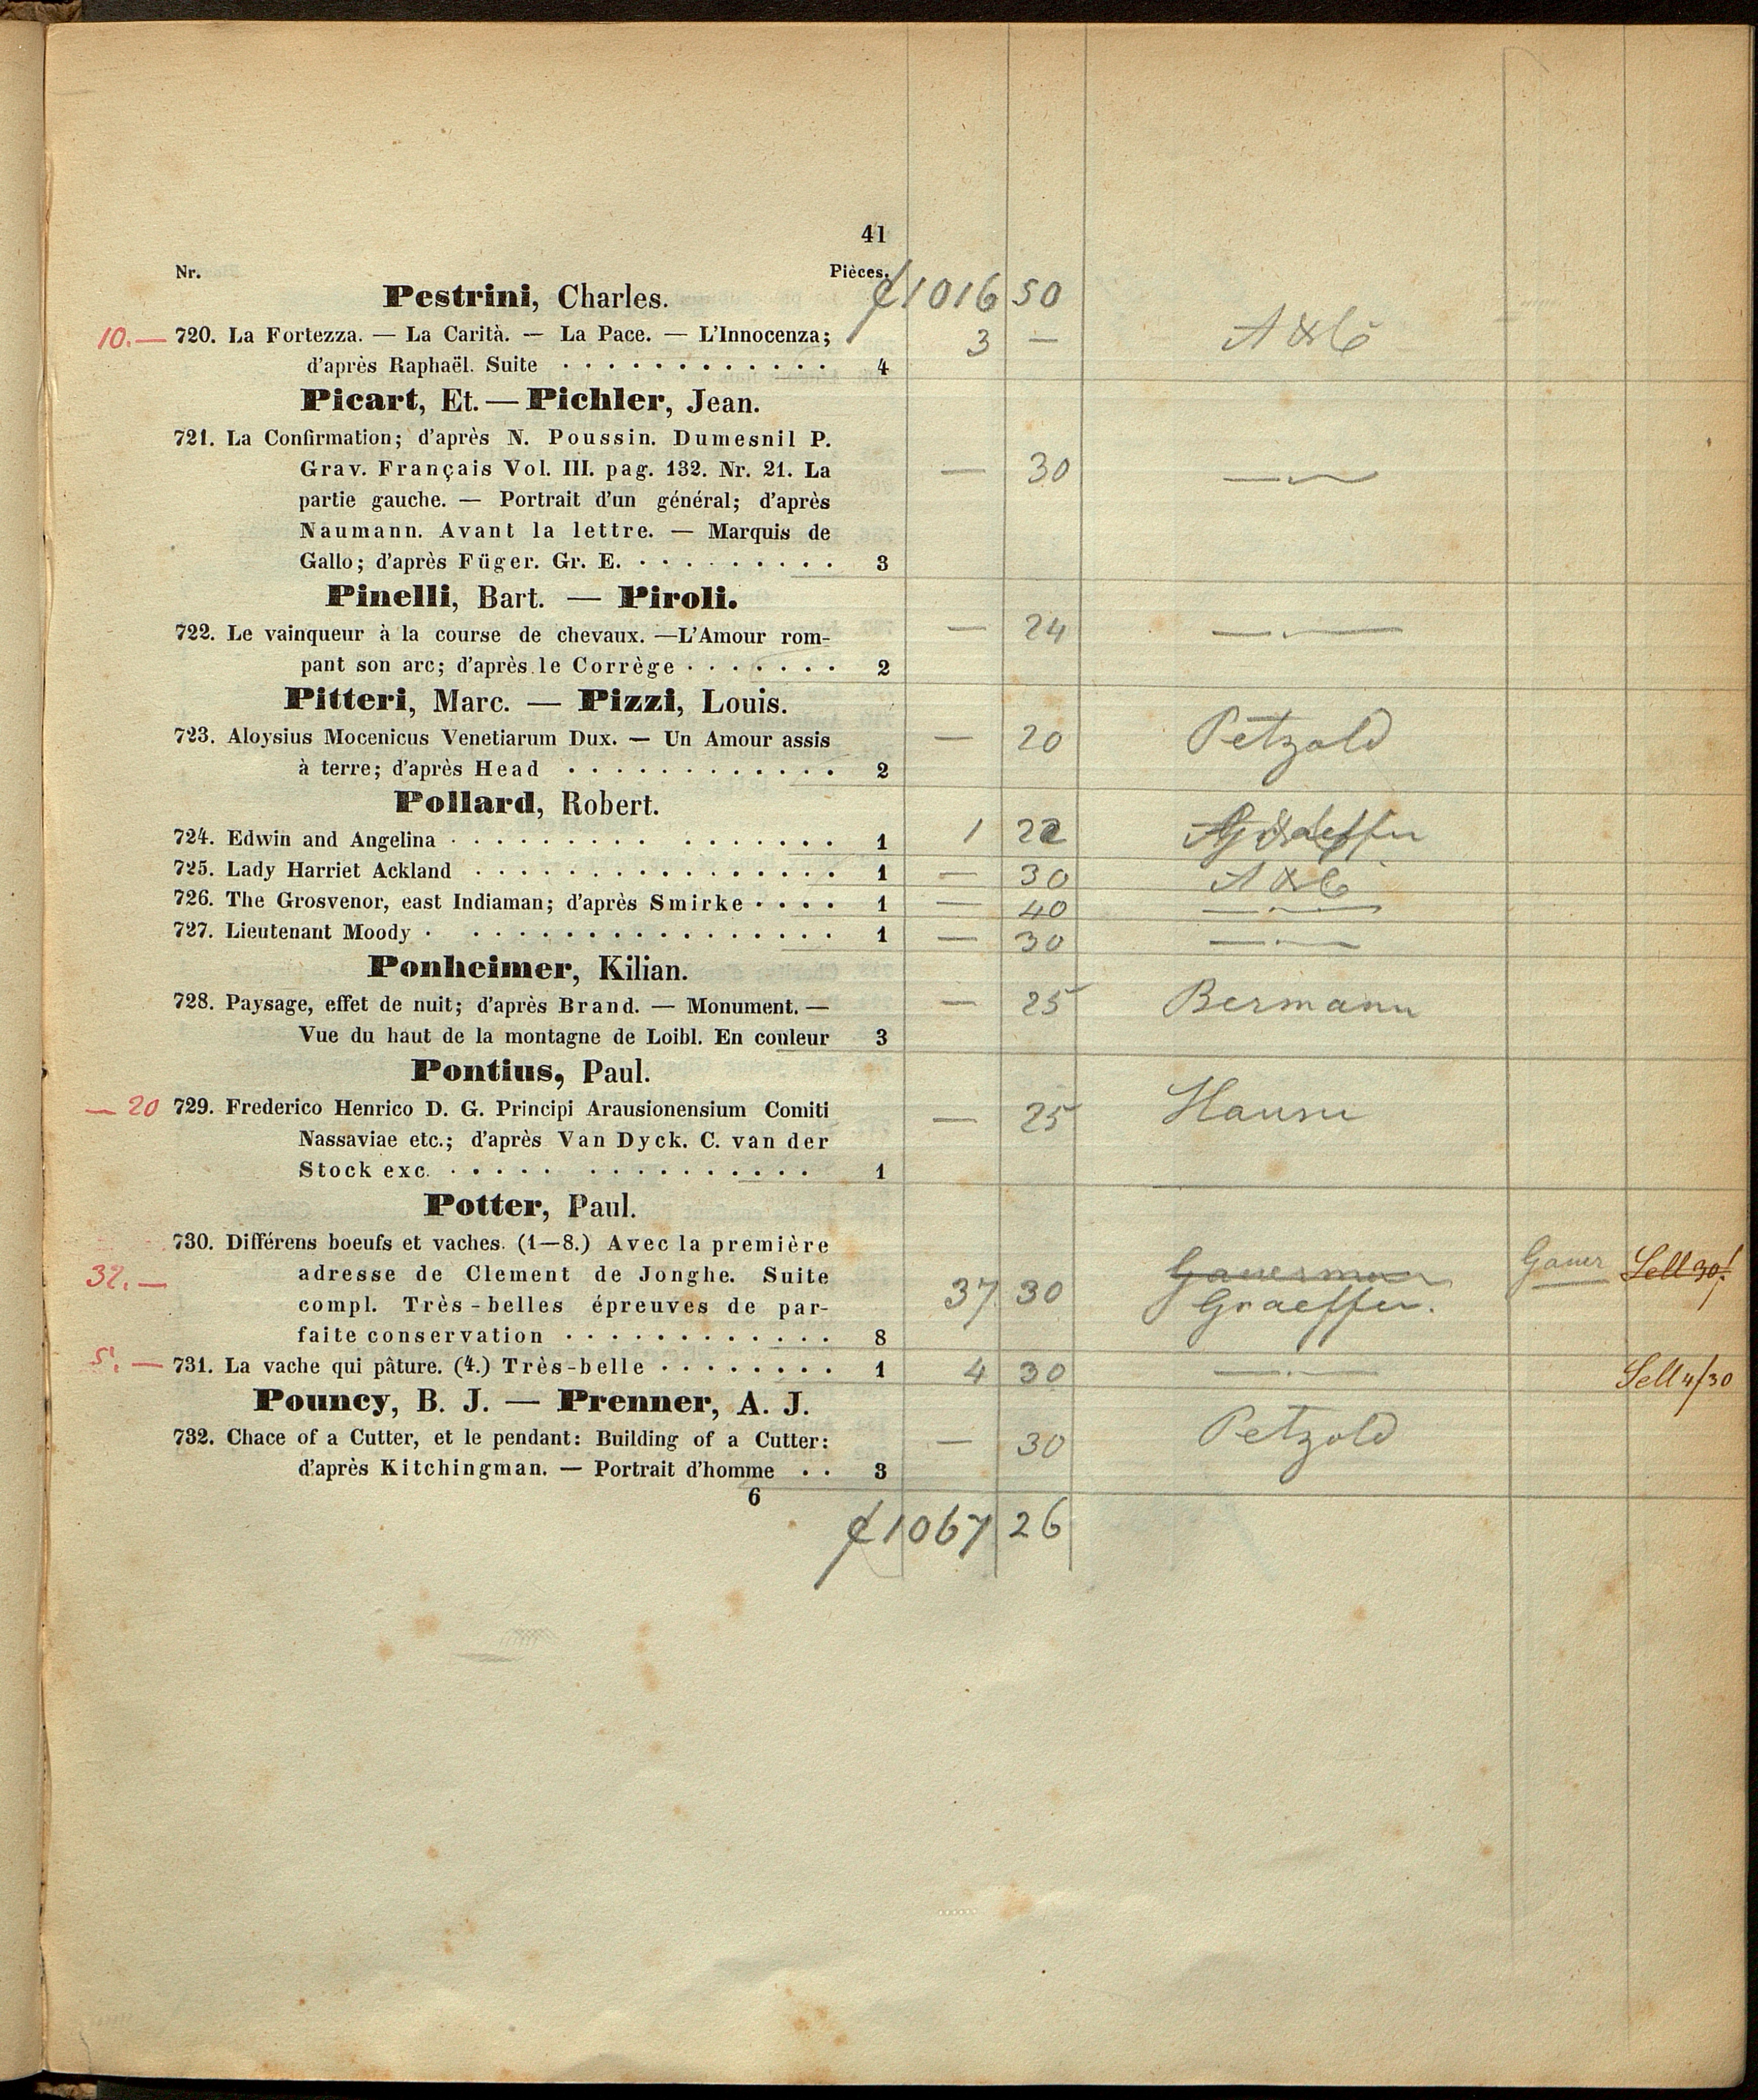 41
Nr. Pièces.
Pestrini, Charles. 1016 50
10.— 720. La Fortezza. — La Carità. — La Pace. — L'Innocenza; 3 —
d'après Raphaël. Suite . . . . . . . . . . . . 4
Picart, Et. — Pichler, Jean.
721. La Confirmation; d'après N. Poussin. Dumesnil P.
Grav. Français Vol. III. pag. 132. Nr. 21. La — 30 —
partie gauche. — Portrait d'un général; d'après
Naumann. Avant la lettre. — Marquis de
Gallo; d'après Füger. Gr. E. . . . . . . . . . 3
Pinelli, Bart. — Piroli.
722. Le vainqueur à la course de chevaux. —L'Amour rom- — 24 —.—
pant son arc; d'après le Corrège . . . . . . . 2
Pitteri, Marc. — Pizzi, Louis.
723. Aloysius Mocenicus Venetiarum Dux. — Un Amour assis — 20 Petzold
à terre; d'après Head . . . . . . . . . . . . 2
Pollard, Robert.
724. Edwin and Angelina . . . . . . . . . . . . . . . 1 1 22 Graeffer
725. Lady Harriet Ackland . . . . . . . . . . . . . . . 1 — 30
726. The Grosvenor, east Indiaman; d'après Smirke . . . . 1 — 40 —.—
727. Lieutenant Moody . . . . . . . . . . . . . . . 1 — 30 —.—
Ponheimer, Kilian.
728. Paysage, effet de nuit; d'après Brand. — Monument. — — 25 Bermann
Vue du haut de la montagne de Loibl. En couleur 3
Pontius, Paul.
— 20 729. Frederico Henrico D. G. Principi Arausionensium Comiti — 25
Nassaviae etc.; d'après Van Dyck. C. van der
Stock exc. . . . . . . . . . . . . . . . 1
Potter, Paul.
730. Différens boeufs et vaches. (1—8.) Avec la première
32.— adresse de Clement de Jonghe. Suite Gauermann Gauer Sell 30/
compl. Très-belles épreuves de par- 37 30 Graeffer.
faite conservation . . . . . . . . . . . . 8
5.— 731. La vache qui pâture. (4.) Très-belle . . . . . . . . 1 4 30 —.— Sell 4/30
Pouncy, B. J. — Prenner, A. J.
732. Chace of a Cutter, et le pendant: Building of a Cutter: — 30 Petzold
d'après Kitchingman. — Portrait d'homme . . 3
6
1067 26